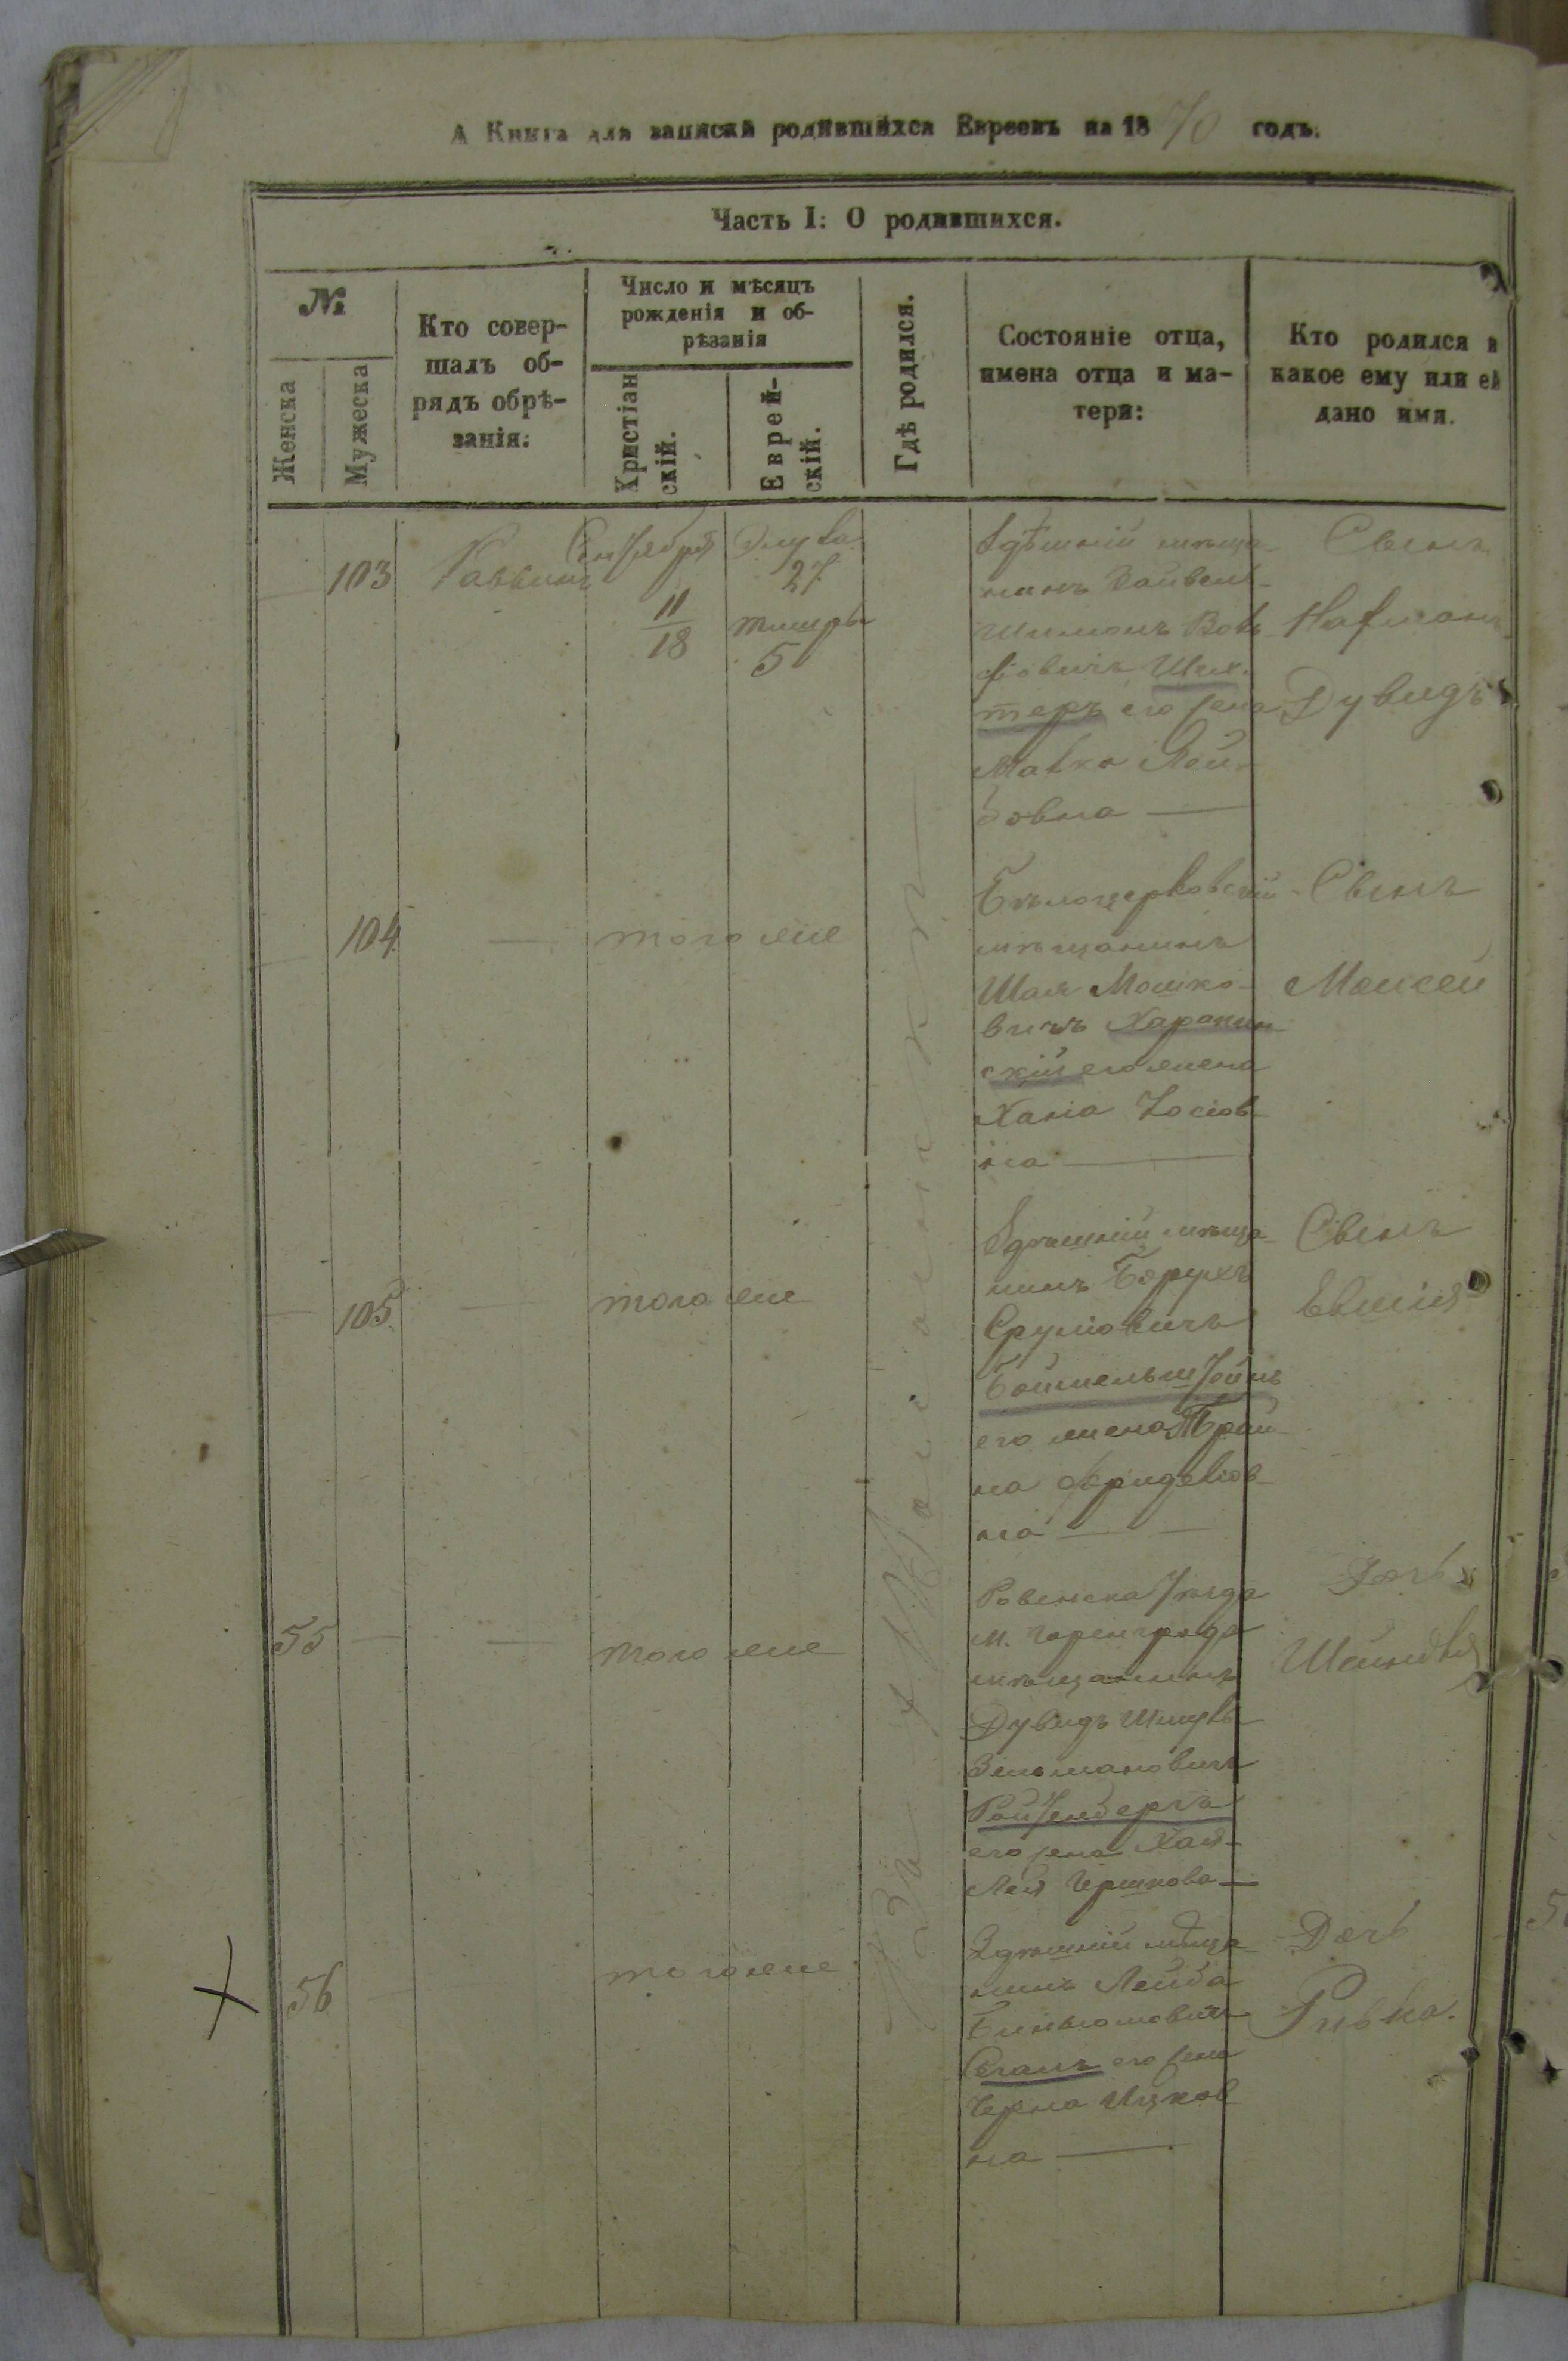 А Книга для записки родившихся Евреевъ на 1870 годъ.
Часть I: О родившихся.
№
Женска
Мужеска
Кто совер-
шалъ об-
рядъ обрѣ-
занія:
Число и мѣсяцъ
рожденія и об-
рѣзанія
Христіан
скій.
Еврей-
скій.
Гдѣ родился.
Состояніе отца,
имена отца и ма-
тери:
Кто родился и
какое ему или ей
дано имя.
103
Раввинъ
Сентября
11
18
Элула
27
тишры
5
Здѣшній мѣща-
нинъ
Шимонъ Воль-
фовичъ Шех-
теръ его жена
Малка Лей-
бовна —
Сынъ
Нафманъ
Дувидъ
104
—
того же
Бѣлоцерковскій
мѣщанинъ
Шая Мошко-
вичъ
скій его жена
Хана Іосіов-
на —
Сынъ
Моисей
105
—
того же
Здѣшній мѣща-
нинъ Борухъ
Сруліовичъ
Боймельштейнъ
его жена Брай-
на Фридель-
на —
Сынъ
55
—
—
того же
Ровенска уѣзда
м.
мѣщанинъ
Дувидъ Шмуль
Зельмановичъ
Ройзенбергъ
его жена Хая-
Лея Гершкова —
Дочь
Шейндля
56
того же
Здѣшній мѣща-
нинъ Лейба
Беньюмовичъ
Сеганъ его жена
Черна Ицков-
на —
Дочь
Ривка.